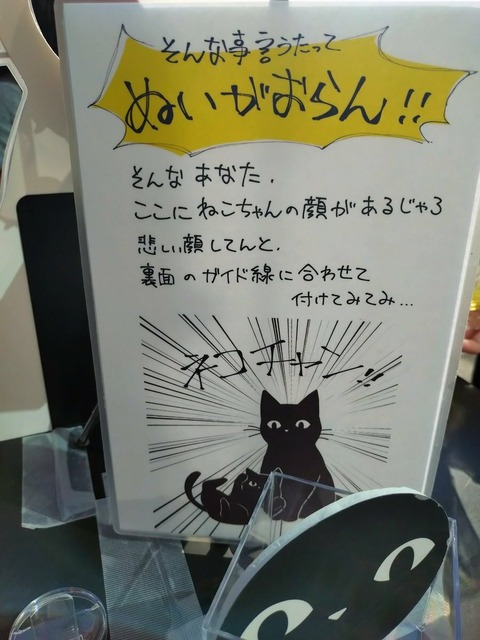 そんな事言うたって
ぬいがおらん!!
そんな あなた.
ここに ねこちゃんの顔が あるじゃろ
悲しい顔してんと.
裏面 の ガイド線 に 合わせて
付けてみてみ...
ネコチャン!!